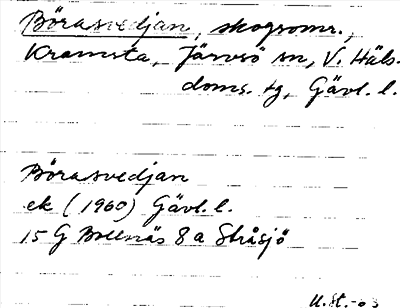 Börasvedjan, skogsomr.,
Kramsta, Järvsö sn, V. Häls.
doms. tg, Gävl. l.
Börasvedjan
ek (1960) Gävl. l.
15 G Bollnäs 8 a Stråsjö
U.St.-63